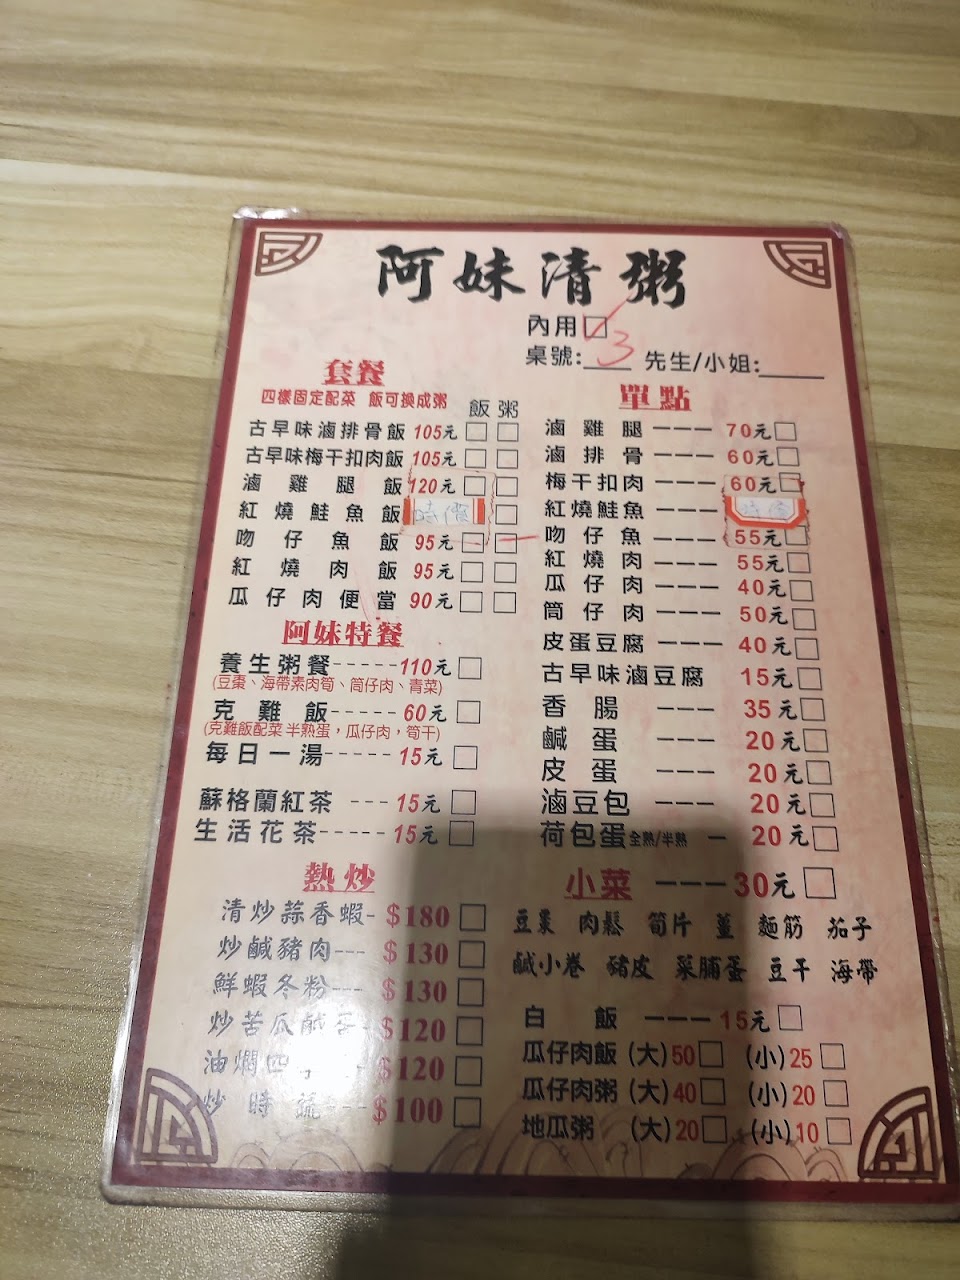 阿妹清粥
內用□
桌號:___ 3 先生/小姐:_____
套餐
四樣固定配菜 飯可換成粥
飯 粥
古早味滷排骨飯 105元□ □
古早味梅干扣肉飯 105元□ □
滷雞腿飯 120元□ □
紅燒鮭魚飯 時價 □
吻仔魚飯 95元□ □
紅燒肉飯 95元□ □
瓜仔肉便當 90元□ □
阿妹特餐
養生粥餐-----110元□
(豆棗、海帶素肉筍、筒仔肉、青菜)
克難飯-----60元□
(克難飯配菜 半熟蛋，瓜仔肉，筍干)
每日一湯-----15元□
蘇格蘭紅茶---15元□
生活花茶-----15元□
熱炒
清炒蒜香蝦-$180□
炒鹹豬肉---$130□
鮮蝦冬粉---$130□
炒苦瓜鹹蛋-$120□
油燜四 -$120□
炒時蔬---$100□
單點
滷雞腿———70元□
滷排骨———60元□
梅干扣肉———60元□
紅燒鮭魚——— 時價
吻仔魚———55元□
紅燒肉———55元□
瓜仔肉———40元□
筒仔肉———50元□
皮蛋豆腐———40元□
古早味滷豆腐 15元□
香腸———35元□
鹹蛋———20元□
皮蛋———20元□
滷豆包———20元□
荷包蛋全熟/半熟—20元□
小菜———30元□
豆棗 肉鬆 筍片 薑 麵筋 茄子
鹹小卷 豬皮 菜脯蛋 豆干 海帶
白飯———15元□
瓜仔肉飯 (大)50□ (小)25□
瓜仔肉粥 (大)40□ (小)20□
地瓜粥 (大)20□ (小)10□